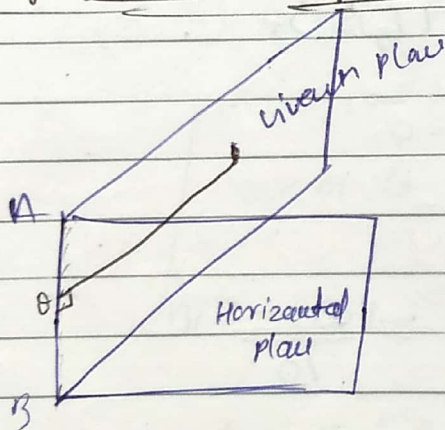 Given Plan
A
θ
Horizantal
Plan
B